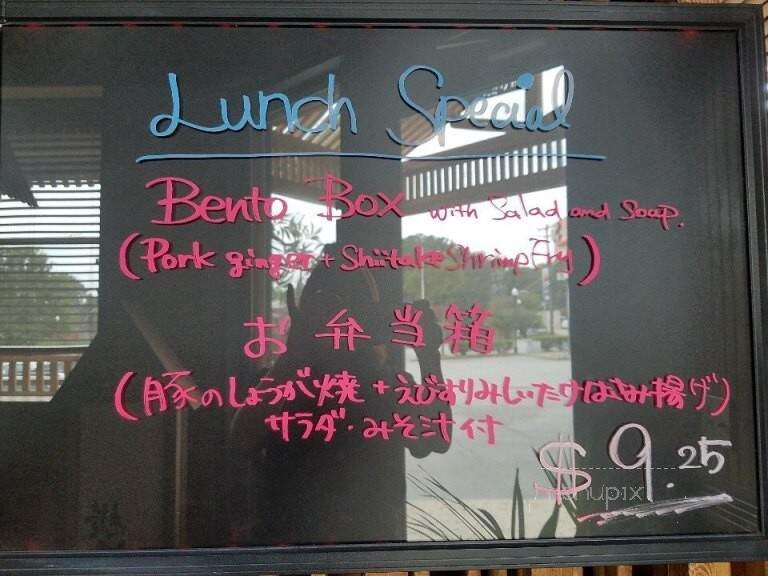 Lunch Special
Bento Box with Salad and Soap.
(Pork ginger + Shiitake Shrimp Fry)
お弁当箱
(豚のしょうが焼 + えびすりみしいたけはさみ揚げ)
サラダ・みそ汁付
$9.25
menupix